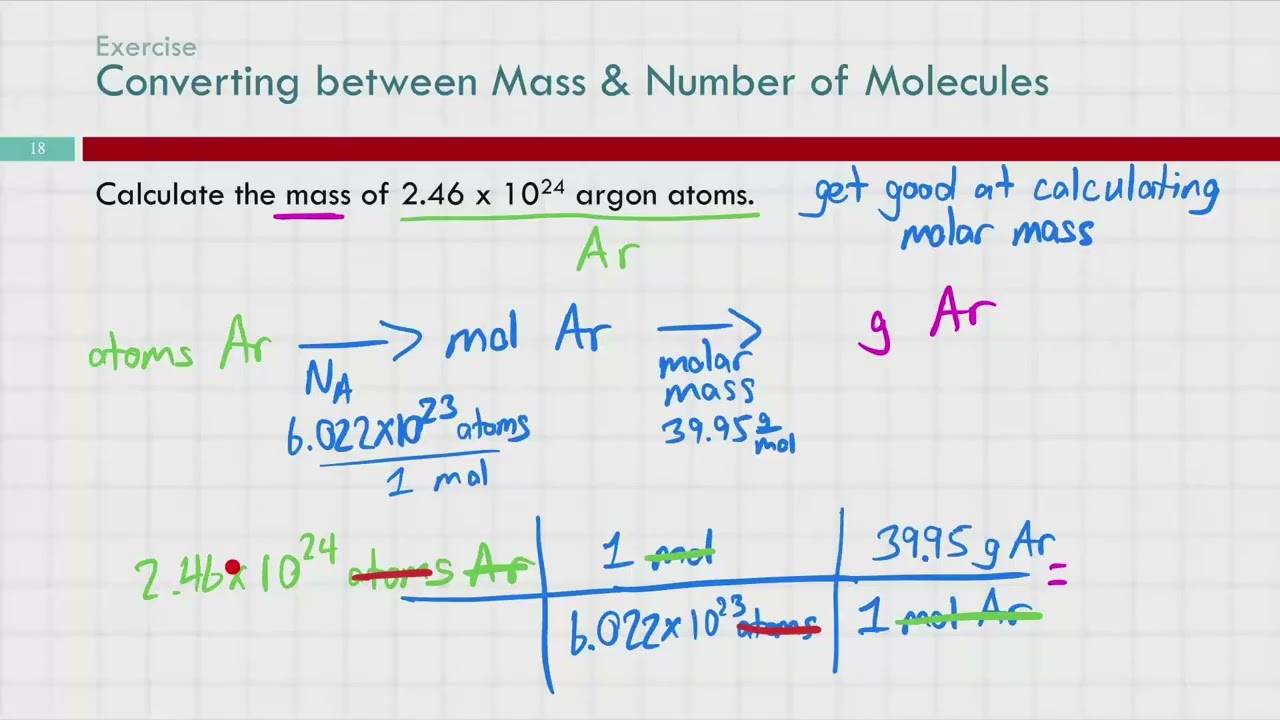 Exercise
Converting between Mass & Number of Molecules
18
Calculate the mass of 2.46 x 10²⁴ argon atoms.
get good at calculating
molar mass
Ar
atoms Ar → mol Ar → g Ar
N_A
molar
mass
6.022x10²³ atoms
39.95 g/mol
1 mol
2.46x10²⁴ atoms Ar 1 mol 39.95 g Ar =
6.022x10²³ atoms 1 mol Ar